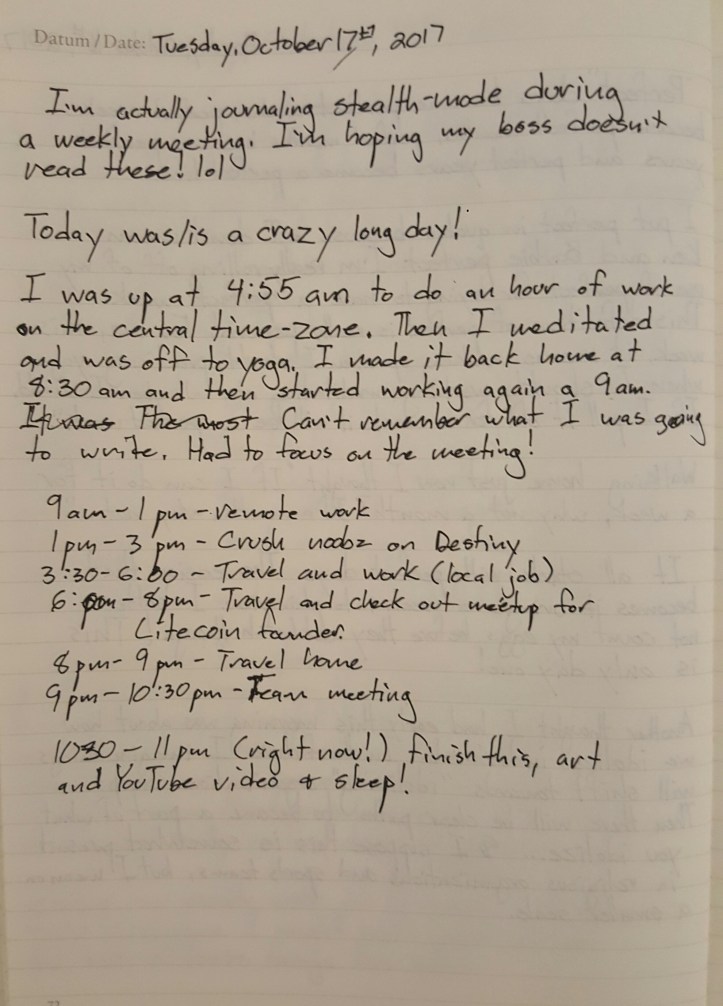 Datum / Date: Tuesday, October 17th, 2017
I'm actually journaling stealth-mode during
a weekly meeting. I'm hoping my boss doesn't
read these! lol
Today was/is a crazy long day!
I was up at 4:55 am to do an hour of work
on the central time-zone. Then I meditated
and was off to yoga. I made it back home at
8:30 am and then started working again a 9am.
It was The most Can't remember what I was going
to write. Had to focus on the meeting!
9am - 1 pm - remote work
1pm - 3 pm - Crush noobz on Destiny
3:30 - 6:00 - Travel and work (local job)
6:pm - 8pm - Travel and check out meetup for
Litecoin founder.
8pm - 9pm - Travel home
9pm - 10:30pm - Team meeting
1030 - 11pm (right now!) finish this, art
and YouTube video & sleep!